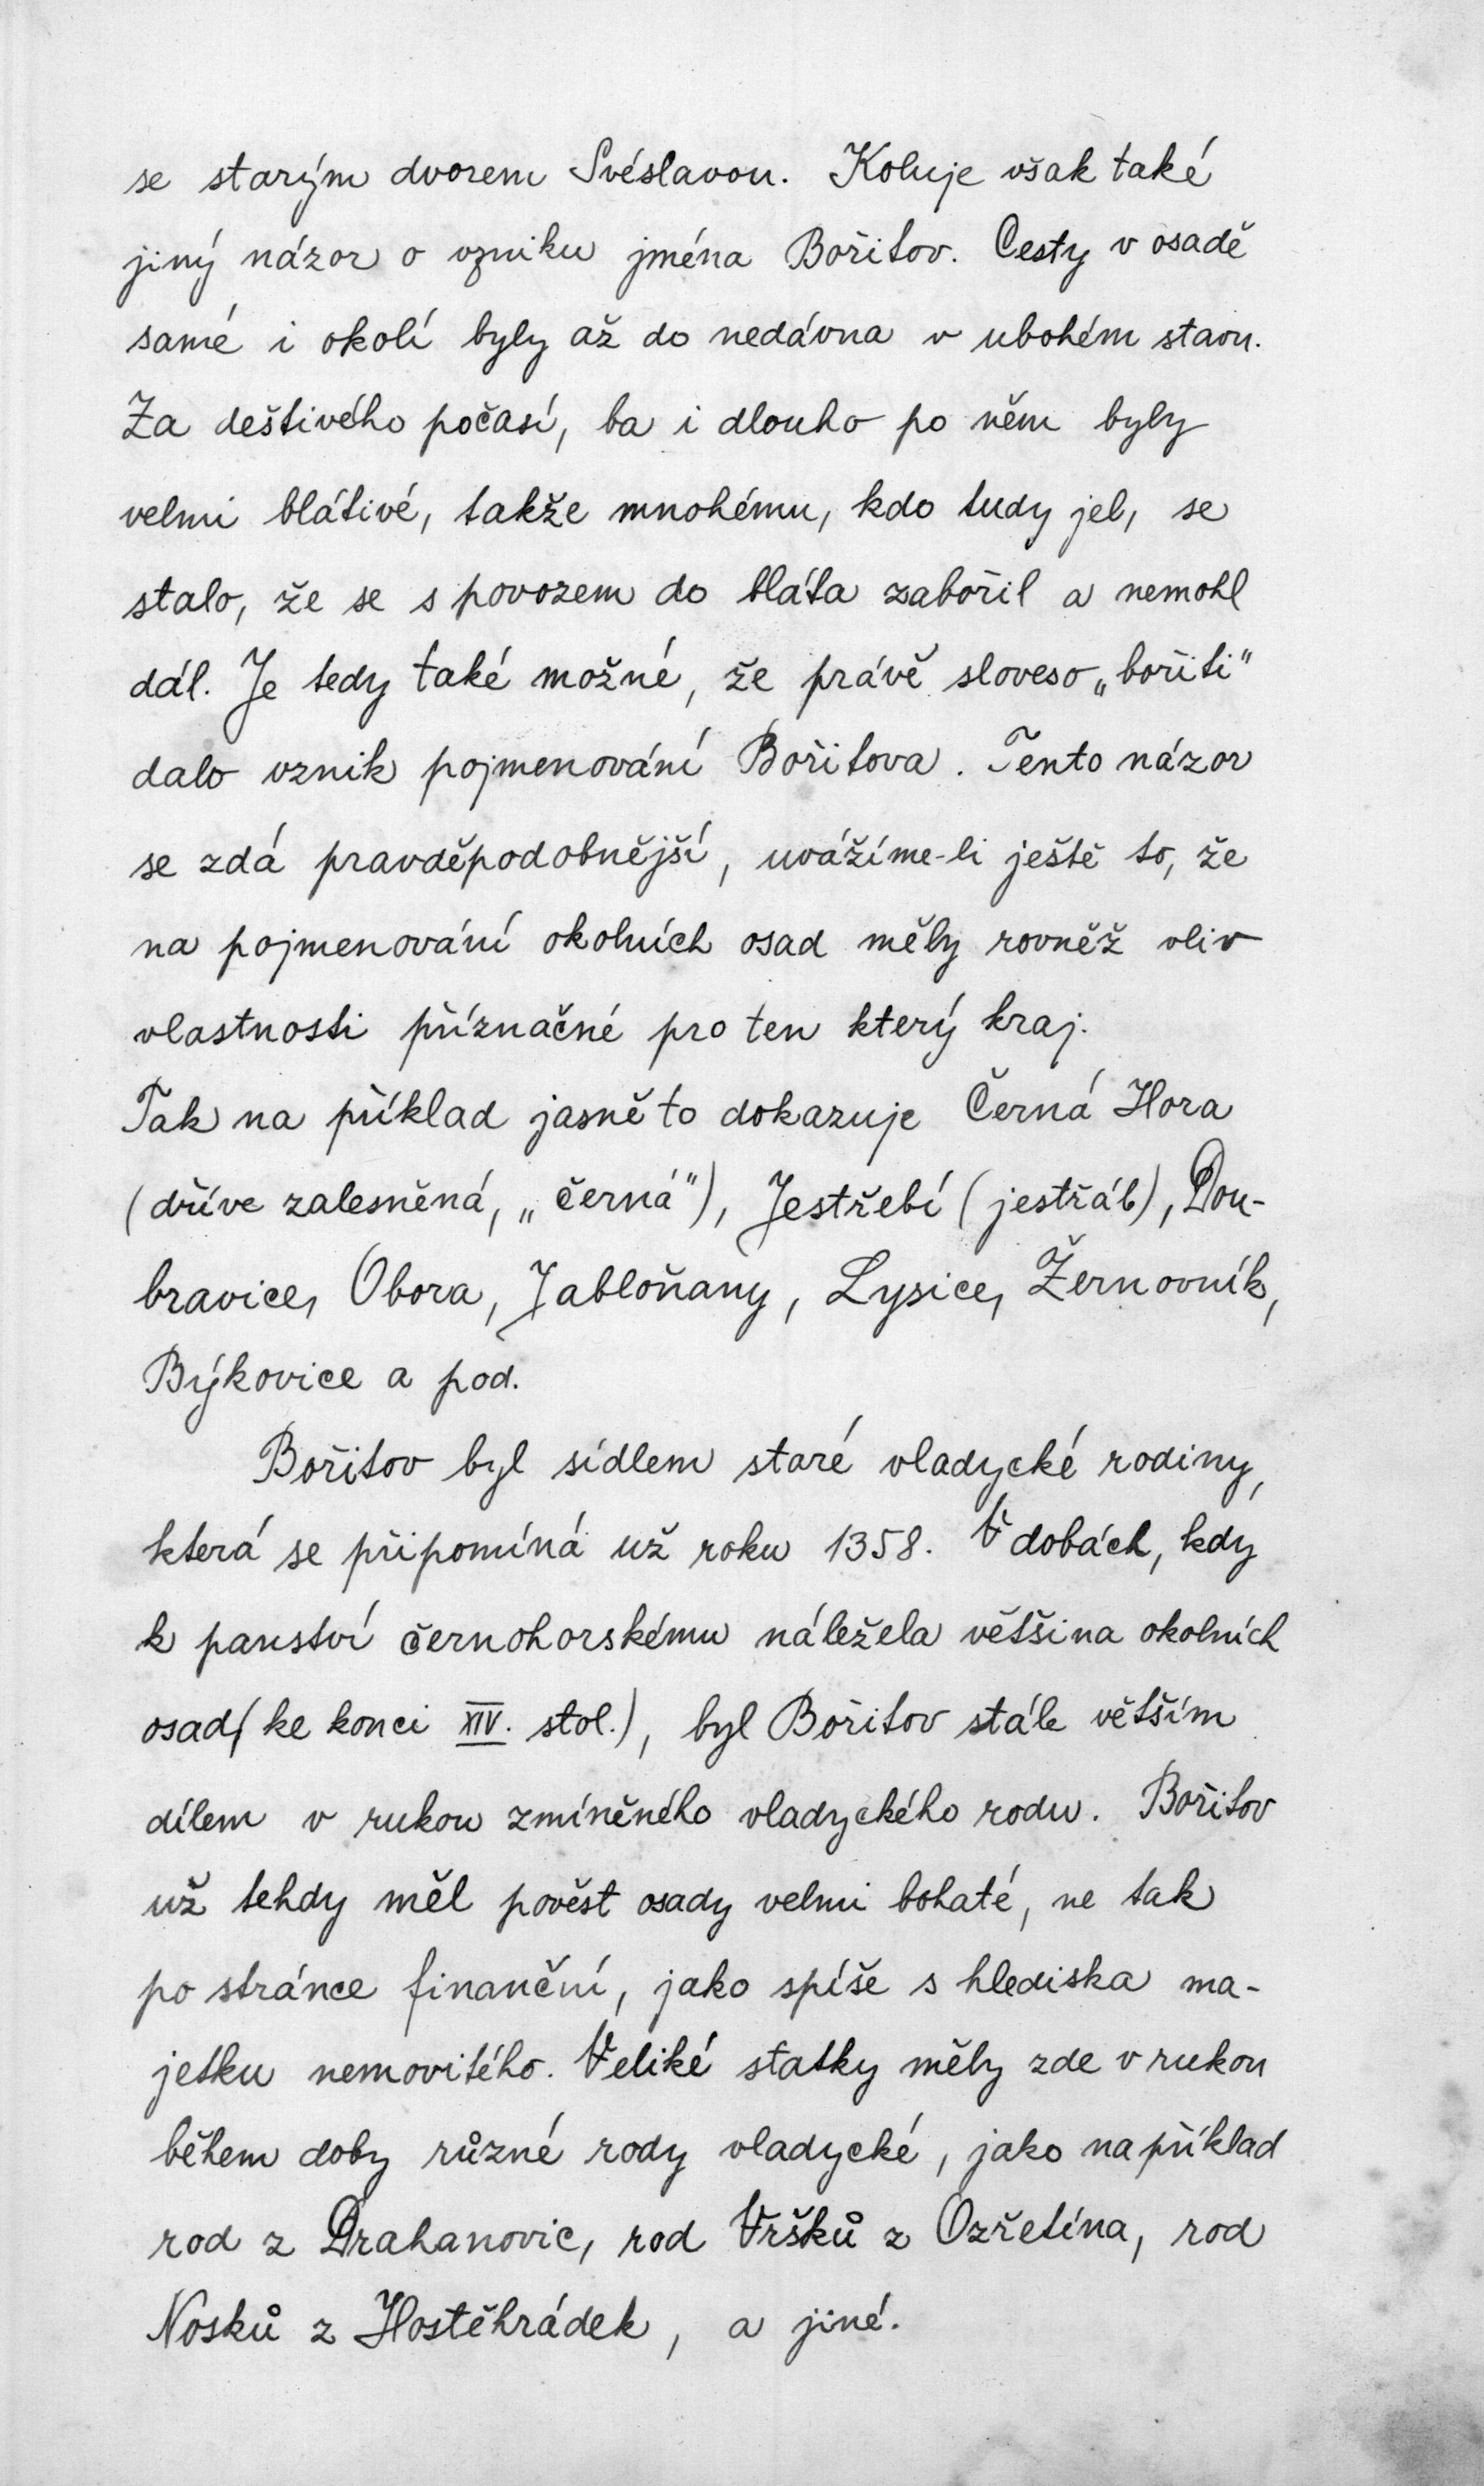 se starým dvorem Svéslavou. Koluje však také
jiný názor o vzniku jména Bořitov. Cesty v osadě
samé i okolí byly až do nedávna v ubohém stavu.
Za deštivého počasí, ba i dlouho po něm byly
velmi blátivé, takže mnohému, kdo tudy jel, se
stalo, že se s povozem do bláta zabořil a nemohl
dál. Je tedy také možné, že právě sloveso „bořiti"
dalo vznik pojmenování Bořitova. Tento názor
se zdá pravděpodobnější, uvážíme-li ještě to, že
na pojmenování okolních osad měly rovněž vliv
vlastnosti příznačné pro ten který kraj.
Tak na příklad jasně to dokazuje Černá Hora
(dříve zalesněná, „černá"), Jestřebí (jestřáb), Dou-
bravice, Obora, Jabloňany, Lysice, Žernovník,
Býkovice a pod.
Bořitov byl sídlem staré vladycké rodiny,
která se připomíná už roku 1358. V dobách, kdy
k panství černohorskému náležela většina okolních
osad (ke konci XIV. stol.), byl Bořitov stále větším
dílem v rukou zmíněného vladyckého rodu. Bořitov
už tehdy měl pověst osady velmi bohaté, ne tak
po stránce finanční, jako spíše s hlediska ma-
jetku nemovitého. Veliké statky měly zde v rukou
během doby různé rody vladycké, jako na příklad
rod z Drahanovic, rod Vršků z Ozřetína, rod
Nosků z Hostěhrádek, a jiné.